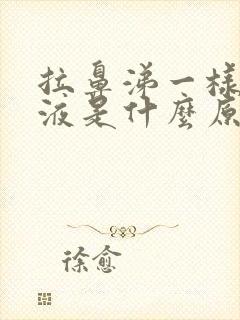 拉鼻涕一样
液是什麼原
徐愈